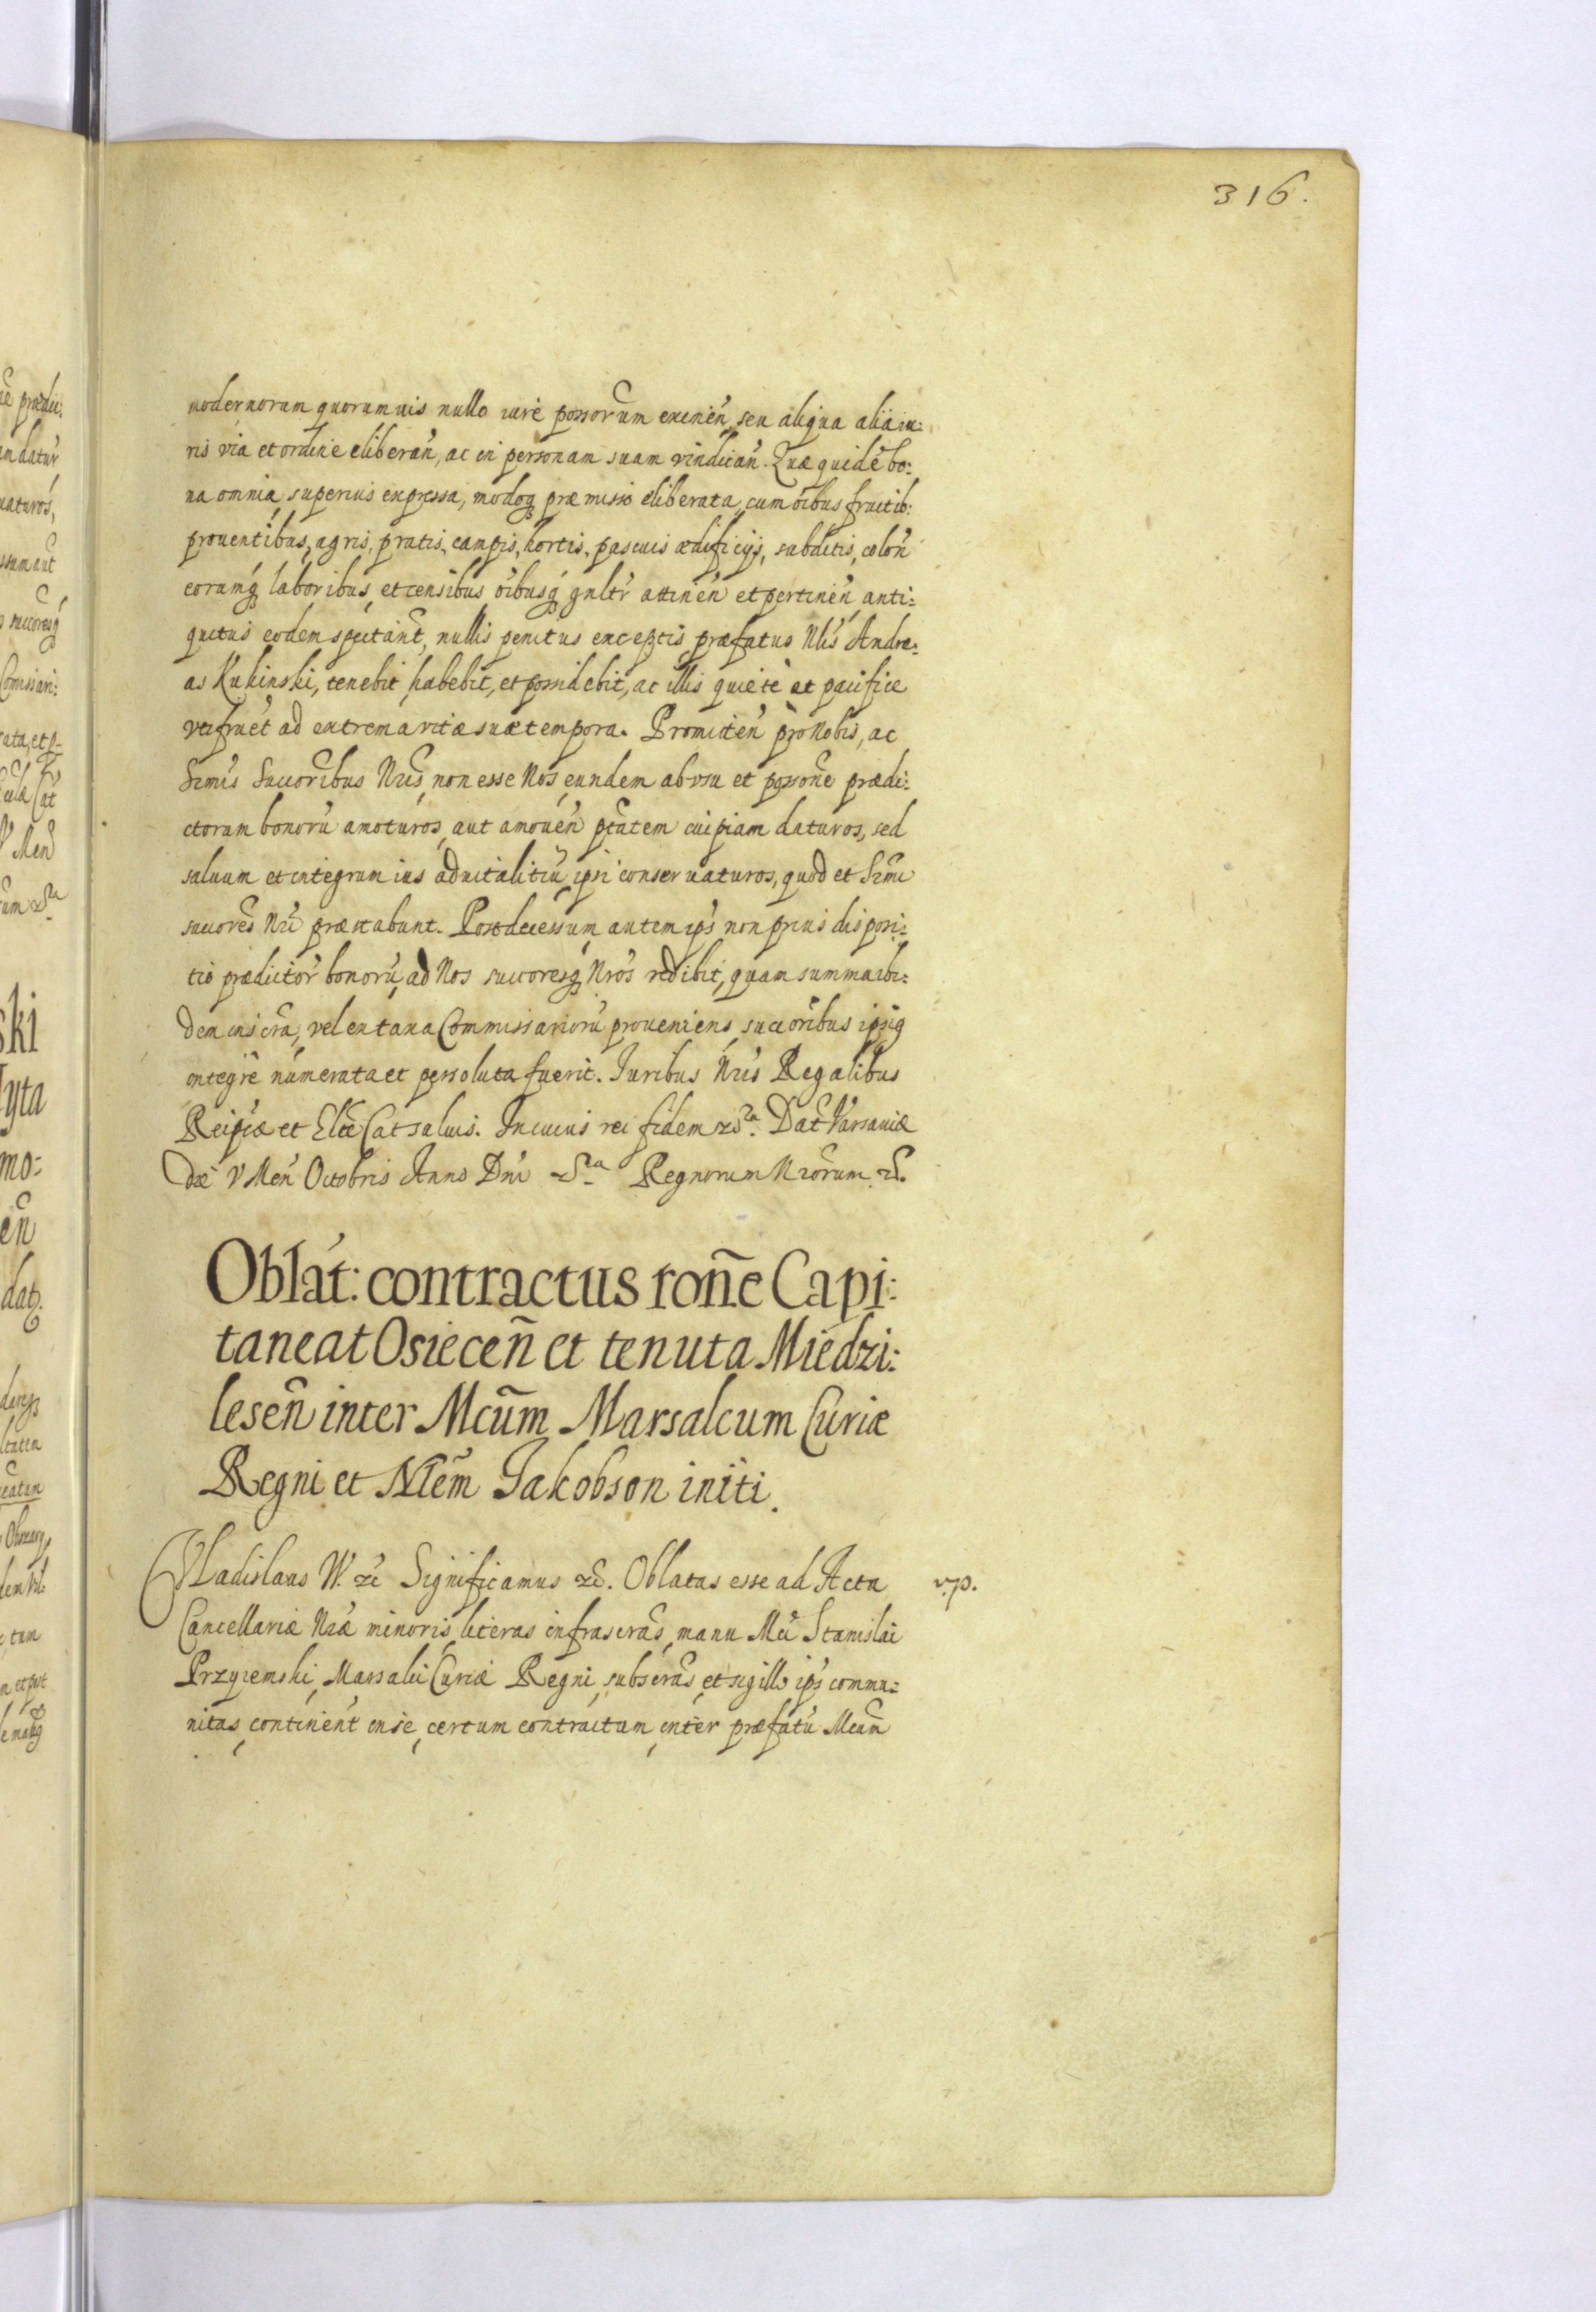 316.
modernorum quorumuis nullo iure possorum eximeñ, seu aliqua alia iu:
ris via et ordine eliberañ, ac in personam suam vindicañ. Quæ quidē bo:
na omnia superius expressa, modoq præmisso eliberata cum oibus fructib:
prouentibus, agris, pratis, campis, hortis, pascuis ædificijs, subditis, coloñ
eorumq laboribus, et censibus oibusq gnltr attineñ et pertineñ anti:
quitus eodem spectant, nullis penitus exceptis præfatus Nlis Andre:
as Kukinski, tenebit, habebit, et possidebit, ac illis quiete et pacifice
vtifruet ad extrema vitæ suæ tempora. Promitteñ pro Nobis, ac
Srmis Succoribus Nris, non esse Nos, eundem ab vsu et possone prædi:
ctorum bonorū amoturos, aut amoueñ ptatem cuipiam daturos, sed
saluum et integrum ius aduitalitiū ipsi conseruaturos, quod et Srmi
succores Nri præstabunt. Post decessum autem ips non prius disposi:
tio prædictor bonorū, ad Nos succoresq Nros redibit, quam summa ibi:
dem inscra, vel ex taxa Commissariorū proueniens succoribus ipsiq
integre numerata et persoluta fuerit. Iuribus Nris Regalibus
Reipcæ et Eccle Cat saluis. In cuius rei fidem &ca. Dat Varsauiæ
die V Men Octobris Anno Dni &ca Regnorum Nrorum &c.
Oblat: contractus rone Capi:
taneat Osieceñ et tenuta Miedzi:
leseñ inter Mcum Marsalcum Curiæ
Regni et Nlem Jakobson initi.
Vladislaus IV. &c Significamus &c. Oblatas esse ad Acta
v. p.
Cancellariæ Nræ minoris literas infrascras manu Mci Stanislai
Przyiemski Marsalci Curiæ Regni subscras et sigillo ips commu:
nitas, continent in se, certum contractum inter præfatū Mcum